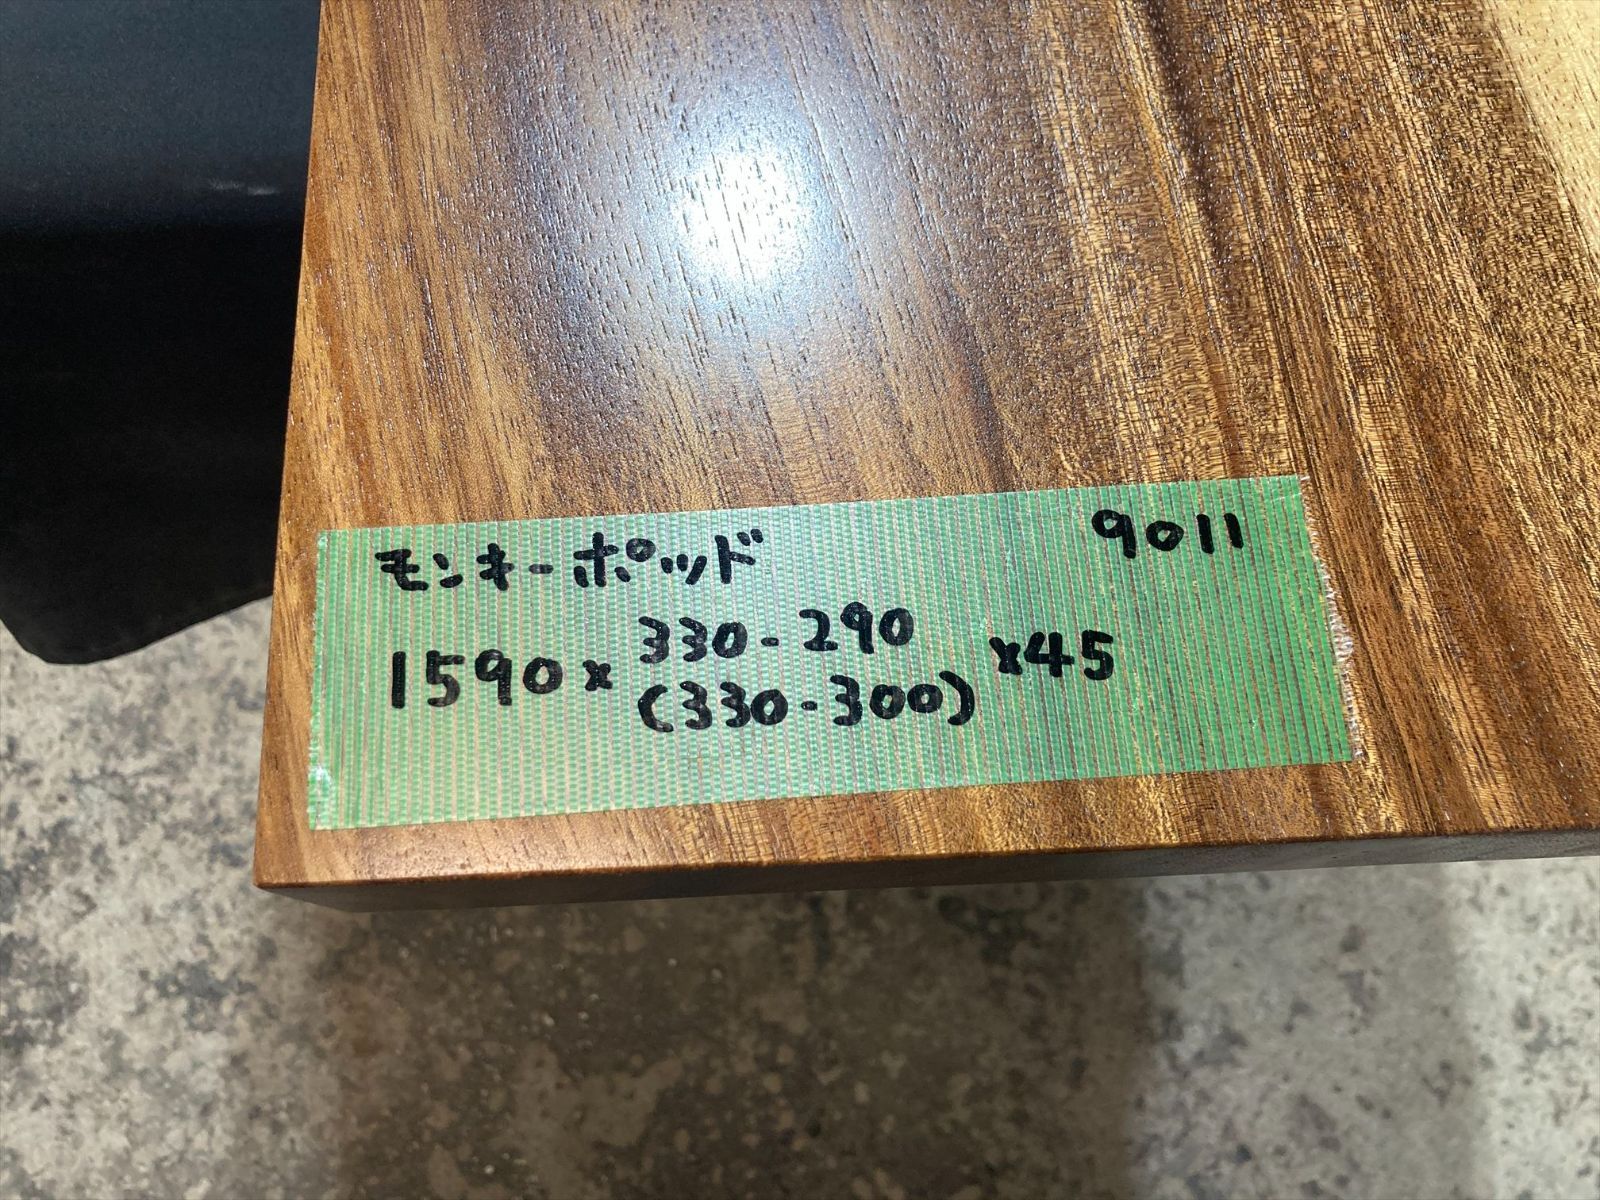 モンキーポッド 9011
1590x 330-290 x45
(330-300)